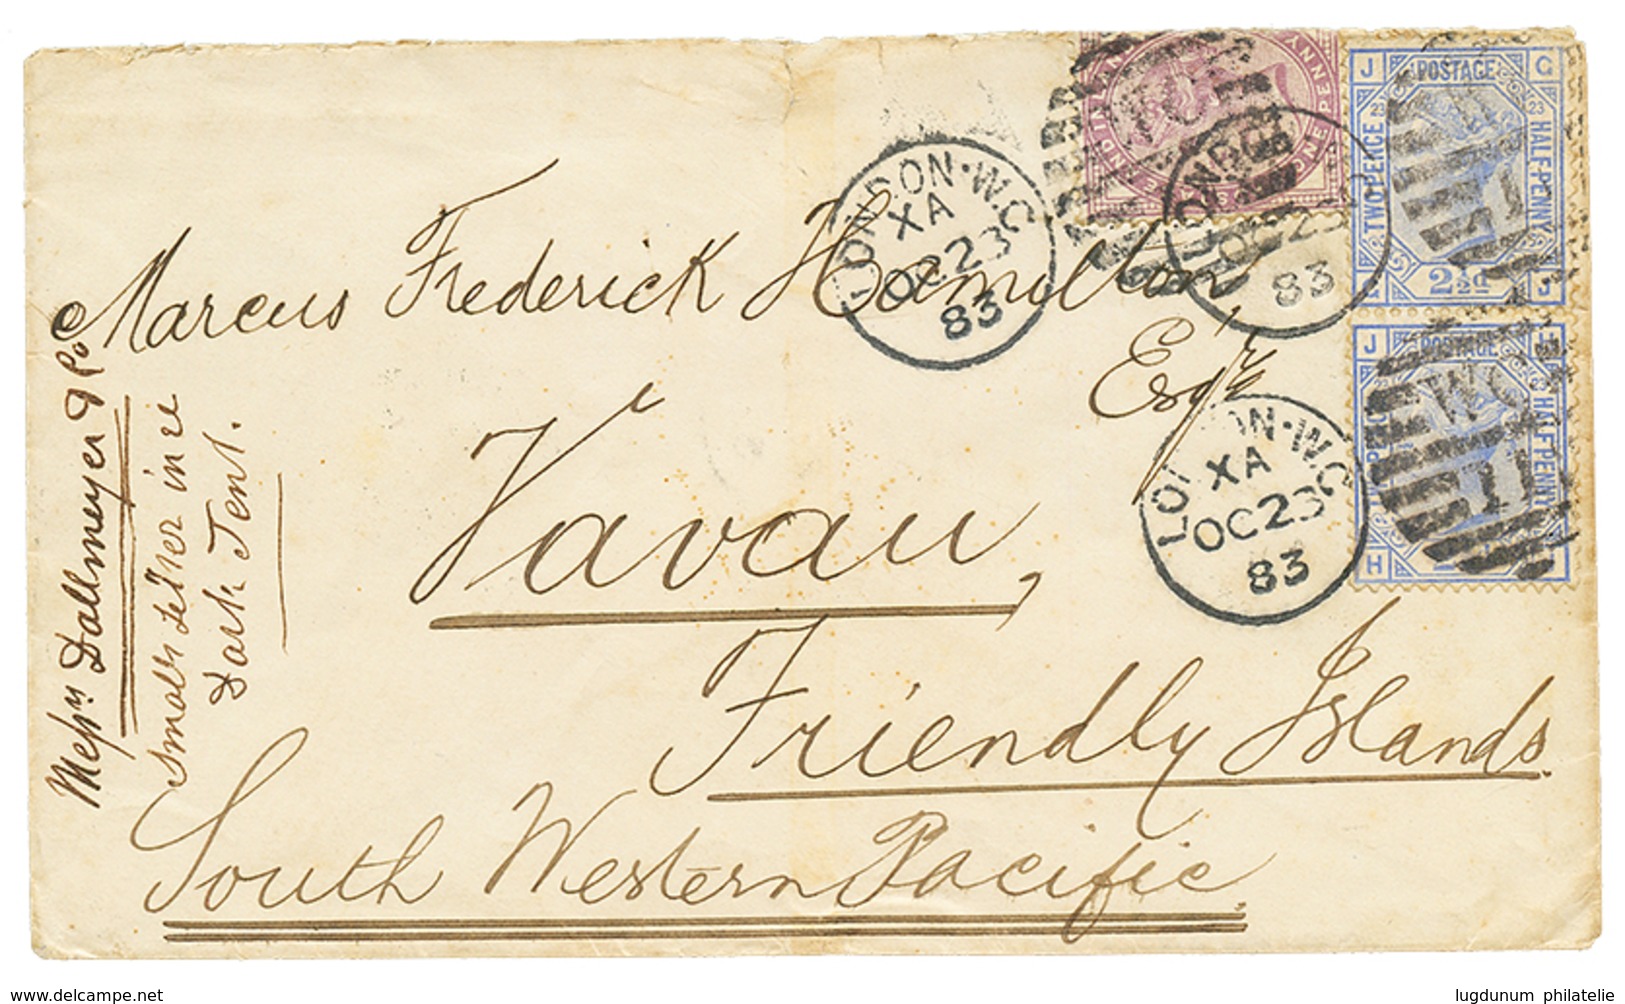 Marcus Frederick Hamilton,
Esqre
Vavau,
Friendly Islands.
South Western Pacific.
Messrs Dallmeyer &
smaller letter in re
Dark Tent.
LONDON·W.C
XA
OC23
83
LONDON
OC23
83
LONDON·W.C
XA
OC23
83
WC
11
POSTAGE
TWOPENCE
HALF-PENNY
2½d
J
G
23
23
G
J
POSTAGE
HALFPENNY
J
H
POSTAGE AND INLAND REVENUE
ONE PENNY
delcampe.net
lugdunum philatelie